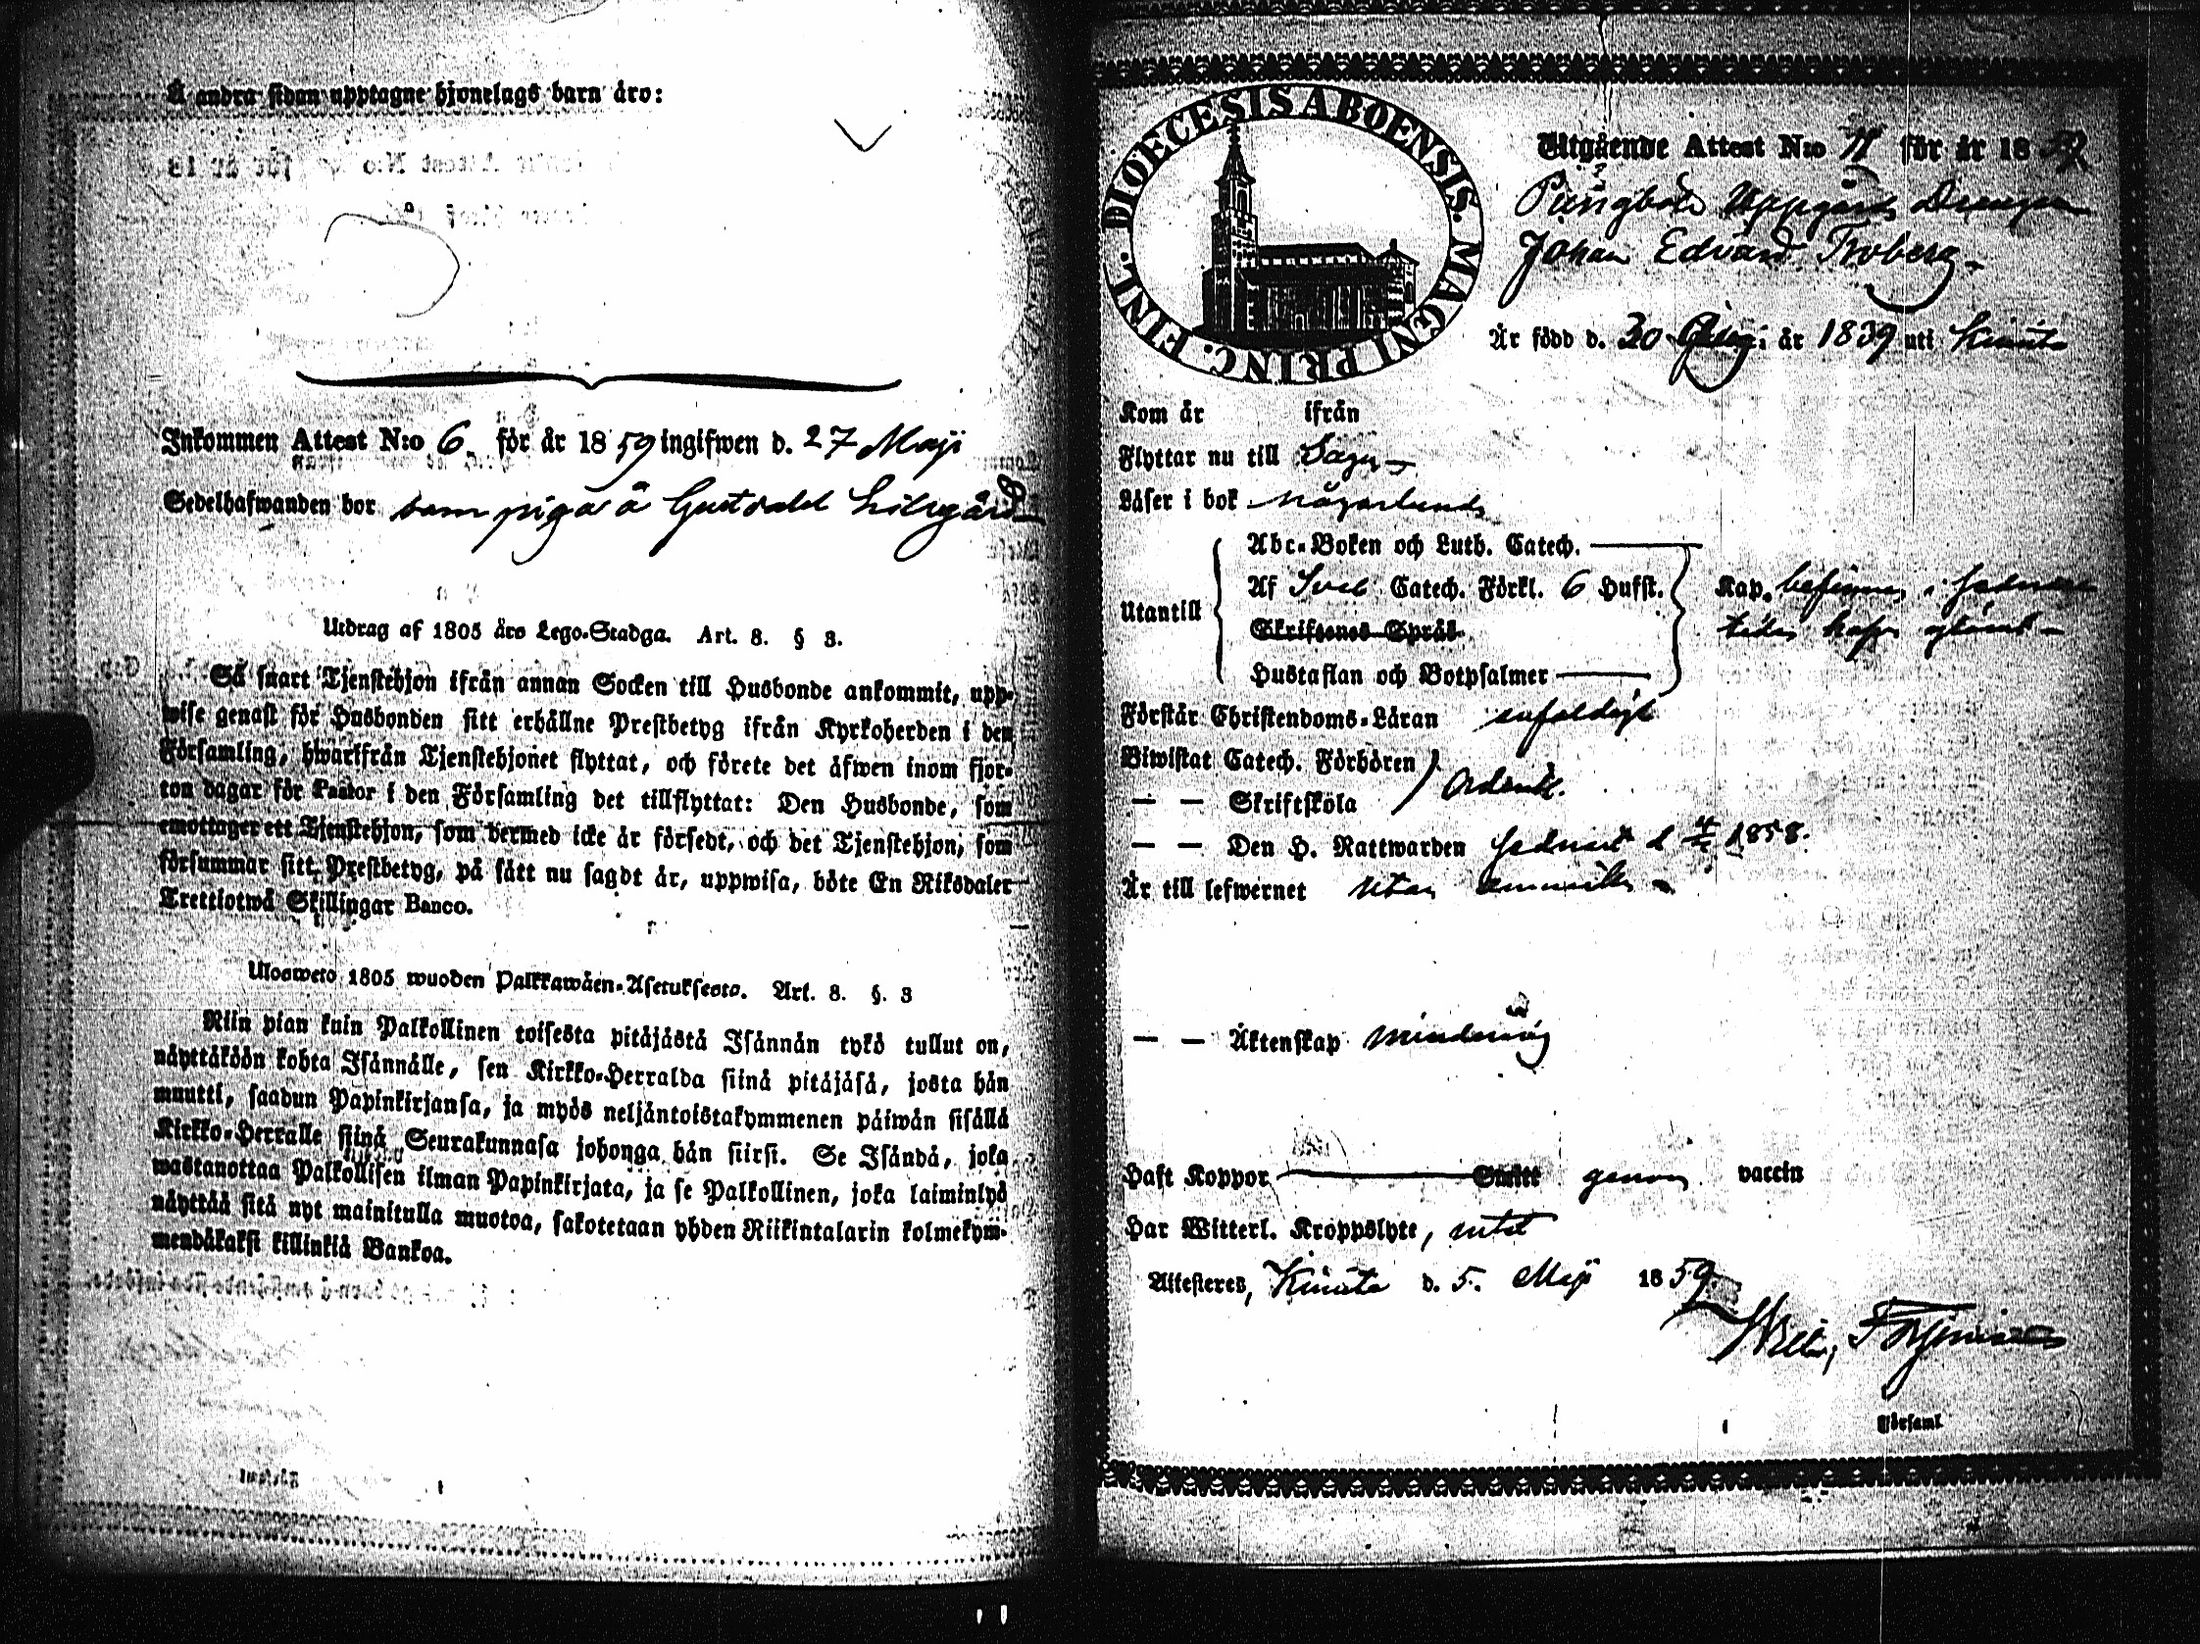 Å andra sidan upptagne hjonelags barn äro:
Inkommen Attest N:o 6 för år 1859 ingifwen d. 27 Maji
Sedelhafwanden bor som piga å
Utdrag af 1805 års Lego-Stadga. Art. 8. § 3.
Så snart Tjenstehjon ifrån annan Socken till Husbonde ankommit, upp-
wise genast för Husbonden sitt erhållne Prestbetyg ifrån Kyrkoherden i den
Församling, hwarifrån Tjenstehjonet flyttat, och förete det äfwen inom fjor-
ton dagar för Pastor i den Församling det tillflyttat: Den Husbonde, som
emottager ett Tjenstehjon, som dermed icke är försedt, och det Tjenstehjon, som
försummar sitt Prestbetyg, på sätt nu sagdt är, uppwisa, böte En Riksdaler
Trettiotwå Skillingar Banco.
Ulosweto 1805 wuoden Palkkawäen-Asetuksesta. Art. 8. §. 3
Niin pian kuin Palkollinen toisesta pitäjästä Isännän tykö tullut on,
näyttäköön kohta Isännälle, sen Kirkko-Herralda siinä pitäjäsä, josta hän
muutti, saadun Papinkirjansa, ja myös neljäntoistakymmenen päiwän sisällä
Kirkko-Herralle siinä Seurakunnasa johonga hän siirsi. Se Isändä, joka
wastanottaa Palkollisen ilman Papinkirjata, ja se Palkollinen, joka laiminlyö
näyttää sitä nyt mainitulla muotoa, sakotetaan yhden Riikintalarin kolmekym-
mendäkaksi killinkiä Bankoa.
DIOECESIS ABOENSIS. MAGNI PRINC. FINL.
Utgående Attest N:o 11 för år 1859
Uppgårds Drengen
Johan Edvard Froberg
Är född d. 30 år 1839 uti Kimito
Kom år ifrån
Flyttar nu till Sagu
Läser i bok någorlunda
Utantill
Abc-Boken och Luth. Catech.
Af Sveb Catech. Förkl. 6 Hufst. Kap. befinnes i
Skriftenes Språk
Hustaflan och Botpsalmer
Förstår Christendoms-Läran enfaldigt
Biwistat Catech. Förhören
— — Skriftskola Ordentl.
— — Den H. Nattwarden senast d 1858.
Är till lefwernet utan anmärkn
— — Äktenskap minderårig
Haft Koppor Smitt genom vaccin
Har Witterl. Kroppslyte, intet
Attesteres, Kimito d. 5. Maji 1859
Församl